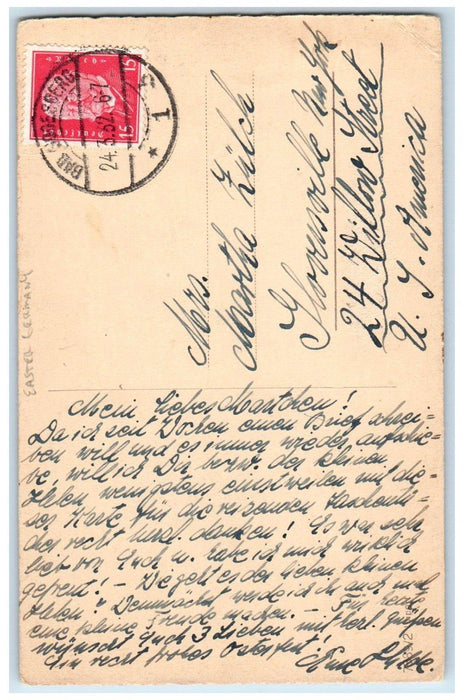 15 15
Deutsches Reich
BAD
24.3.32.6-7
1
Mrs.
Martha Zülch
Gloversville New York
24 Willow Street
U. S. America
EASTER GERMANY
Mein liebes Martchen!
Da ich seit Wochen einen Brief schrei-
ben will und es immer wieder aufschie-
be, will ich Dir, bezw. der kleinen
Helen wenigstens einstweilen mit die-
ser Karte für die reizenden Taschentü-
cher recht herzl. danken! Es war sehr
lieb von Euch u. habe ich mich wirklich
gefreut! - Wie geht es der lieben kleinen
Helen? Demnächst werde ich auch mal
eine kleine Freude machen. - Für heute
wünscht Euch 3 Lieben mit herzl. Grüßen
Ein recht frohes Osterfest!